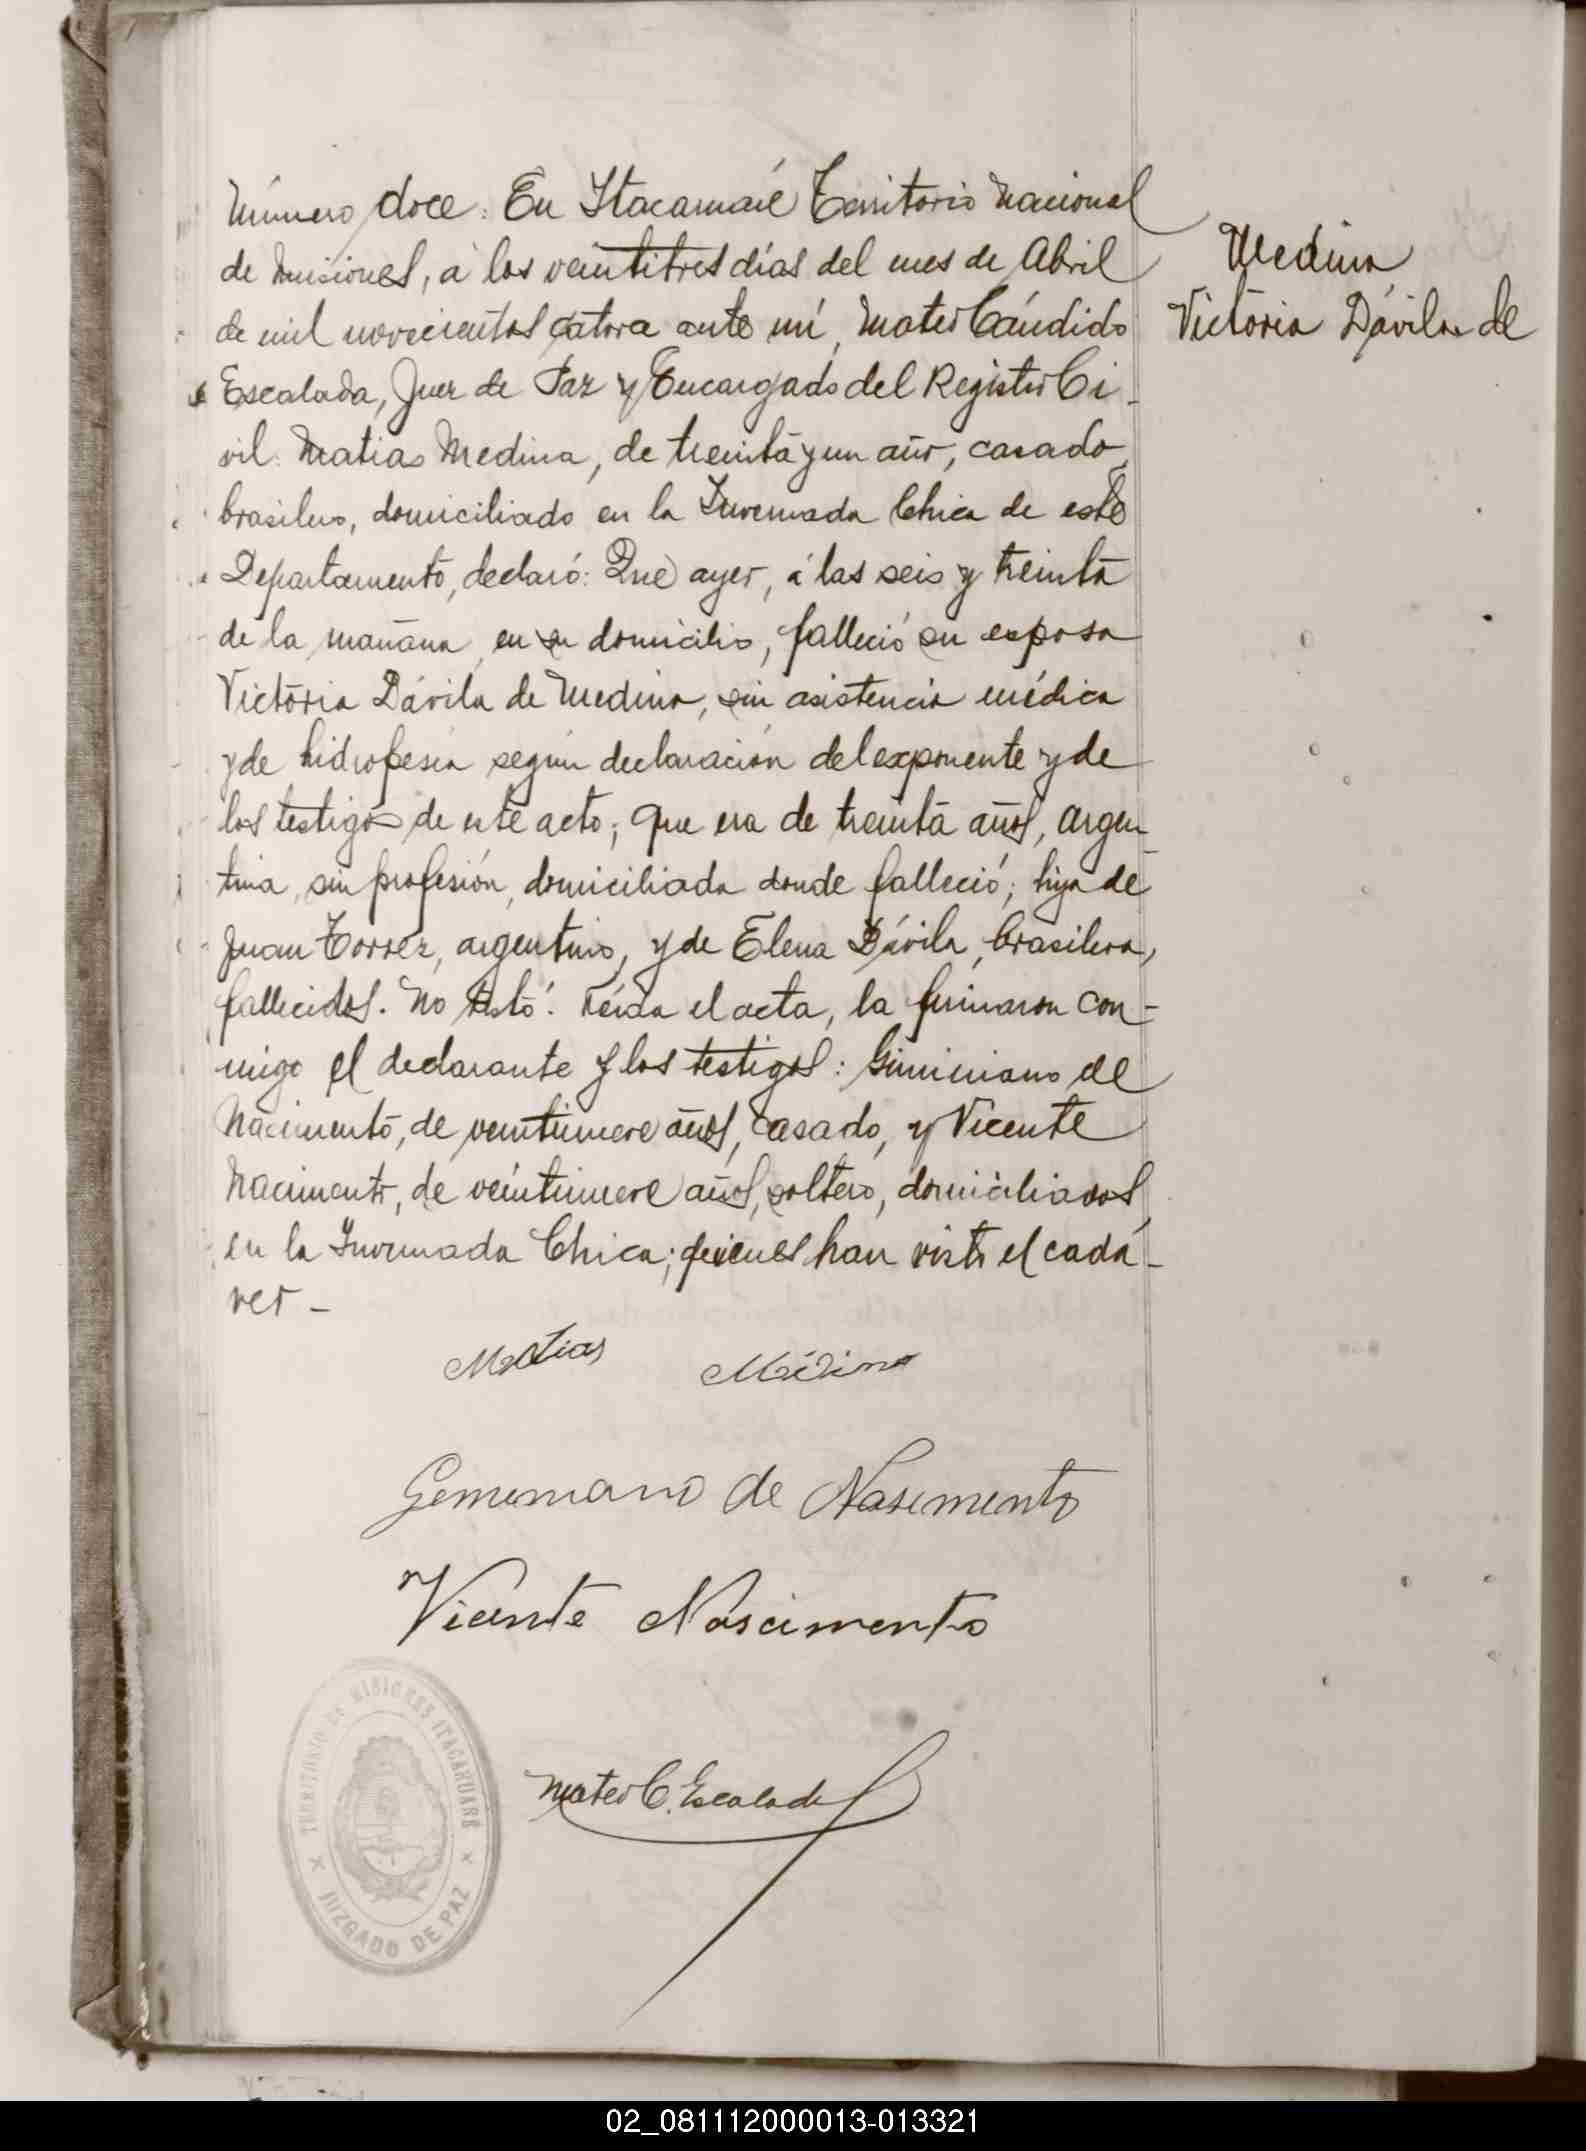 Número doce: En Itacaruaré Territorio Nacional
de Misiones, á los veintitres días del mes de Abril
de mil novecientos catorce ante mí, Mateo Cándido
Escalada, Juez de Paz y Encargado del Registro Ci-
vil: Matias Medina, de treinta y un año, casado,
brasilero, domiciliado en la Invernada Chica de este
Departamento, declaró: Que ayer, á las seis y treinta
de la mañana, en su domicilio, falleció su esposa
Victoria Dávila de Medina, sin asistencia médica
y de hidropesía según declaración del exponente y de
los testigos de este acto; que era de treinta años, argen-
tina, sin profesión, domiciliada donde falleció; hija de
Juan Torrez, argentino, y de Elena Dávila, brasilera,
fallecidos. No testó. Leída el acta, la firmaron con-
migo el declarante y los testigos: Giminiano de
Nacimento, de veintinueve años, casado, y Vicente
Nacimento, de veintinueve años, soltero, domiciliados
en la Invernada Chica; quienes han visto el cadá-
ver -
Medina
Victoria Dávila de
Matias Medina
Gemeniano de Nasimento
Vicente Nascimento
Mateo C. Escalada
TERRITORIO DE MISIONES ITACARUARE
JUZGADO DE PAZ
02_081112000013-013321